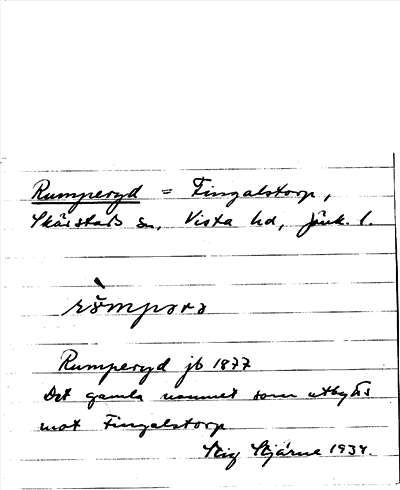 Rumperyd = Fingalstorp,
Skärstads sn, Vista hd, Jönk. l.
Rumperyd jb 1877
Det gamla namnet som utbytts
mot Fingalstorp
Stig Stjärne 1934.